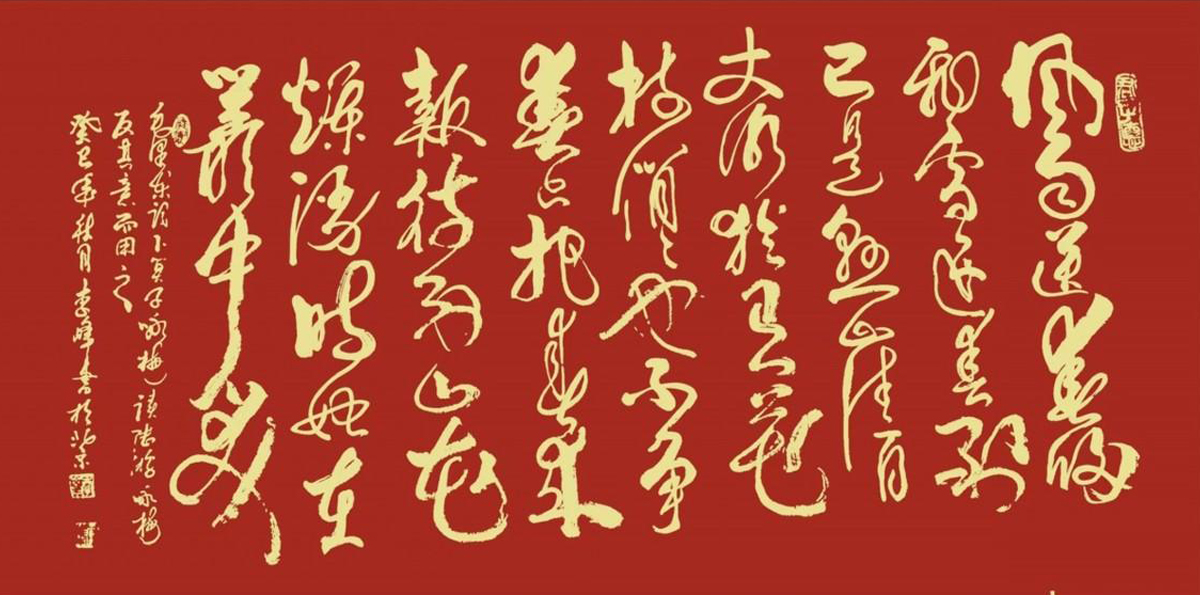 风雨送春归
飛雪迎春到
已是懸崖百
丈冰猶有花
枝俏〻也不争
春只把春来
報待到山花
爛漫時她在
叢中笑
毛泽东词卜算子(咏梅)读陆游咏梅
反其意而用之
癸巳年秋月李峰书於北京